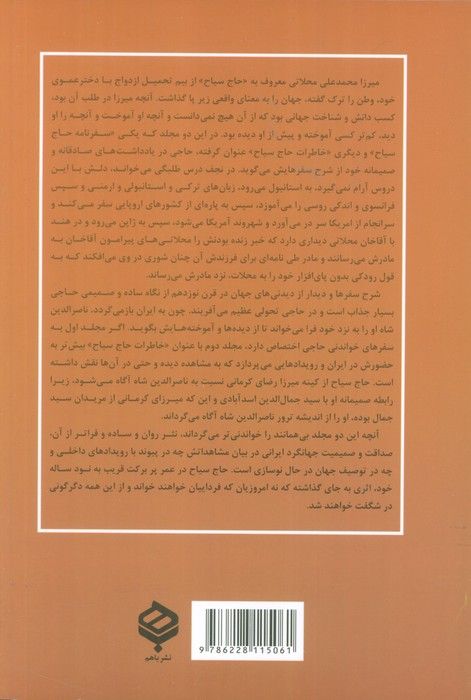 میرزا محمدعلی محلاتی معروف به «حاج سیاح» از بیم تحمیل ازدواج با دخترعموی
خود، وطن را ترک گفته، جهان را به معنای واقعی زیر پا گذاشت. آنچه میرزا در طلب آن بود،
کسب دانش و شناخت جهانی بود که از آن هیچ نمی‌دانست و آنچه او آموخت و آنچه را او
دید، کم‌تر کسی آموخته و پیش از او دیده بود. در این دو مجلد که یکی «سفرنامه حاج
سیاح» و دیگری «خاطرات حاج سیاح» عنوان گرفته، حاجی در یادداشت‌های صادقانه و
صمیمانه خود از شرح سفرهایش می‌گوید. در نجف درس طلبگی می‌خواند، دلش با این
دروس آرام نمی‌گیرد، به استانبول می‌رود، زبان‌های ترکی و استانبولی و ارمنی و سپس
فرانسوی و اندکی روسی را می‌آموزد، سپس به پاره‌ای از کشورهای اروپایی سفر می‌کند و
سرانجام از امریکا سر در می‌آورد و شهروند آمریکا می‌شود، سپس به ژاپن می‌رود و در هند
با آقاخان محلاتی دیداری دارد که خبر زنده بودنش را محلاتی‌های پیرامون آقاخان به
مادرش می‌رسانند و مادر طی نامه‌ای برای فرزندش آن چنان شوری در وی می‌افکند که به
قول رودکی بدون پای‌افزار خود را به محلات، نزد مادرش می‌رساند.
شرح سفرها و دیدار از دیدنی‌های جهان در قرن نوزدهم از نگاه ساده و صمیمی حاجی
بسیار جذاب است و در حاجی تحولی عظیم می‌آفریند. چون به ایران بازمی‌گردد، ناصرالدین
شاه او را به نزد خود فرا می‌خواند تا از دیده‌ها و آموخته‌هایش بگوید. اگر مجلد اول به
سفرهای خواندنی حاجی اختصاص دارد، مجلد دوم با عنوان «خاطرات حاج سیاح» بیش‌تر به
حضورش در ایران و رویدادهایی می‌پردازد که به مشاهده دیده و حتی در آن‌ها نقش داشته
است. حاج سیاح از کینه میرزا رضای کرمانی نسبت به ناصرالدین شاه آگاه می‌شود، زیرا
رابطه صمیمانه او با سید جمال‌الدین اسدآبادی و این که میرزای کرمانی از مریدان سید
جمال بوده، او را از اندیشه ترور ناصرالدین شاه آگاه می‌گرداند.
آنچه این دو مجلد بی‌همانند را خواندنی‌تر می‌گرداند، نثر روان و ساده و فراتر از آن،
صداقت و صمیمیت جهانگرد ایرانی در بیان مشاهداتش چه در پیوند با رویدادهای داخلی و
چه در توصیف جهان در حال نوسازی است. حاج سیاح در عمر پر برکت قریب به نود ساله
خود، اثری به جای گذاشته که نه امروزیان که فرداییان خواهند خواند و از این همه دگرگونی
در شگفت خواهند شد.
نشر باهم
9 786228 115061